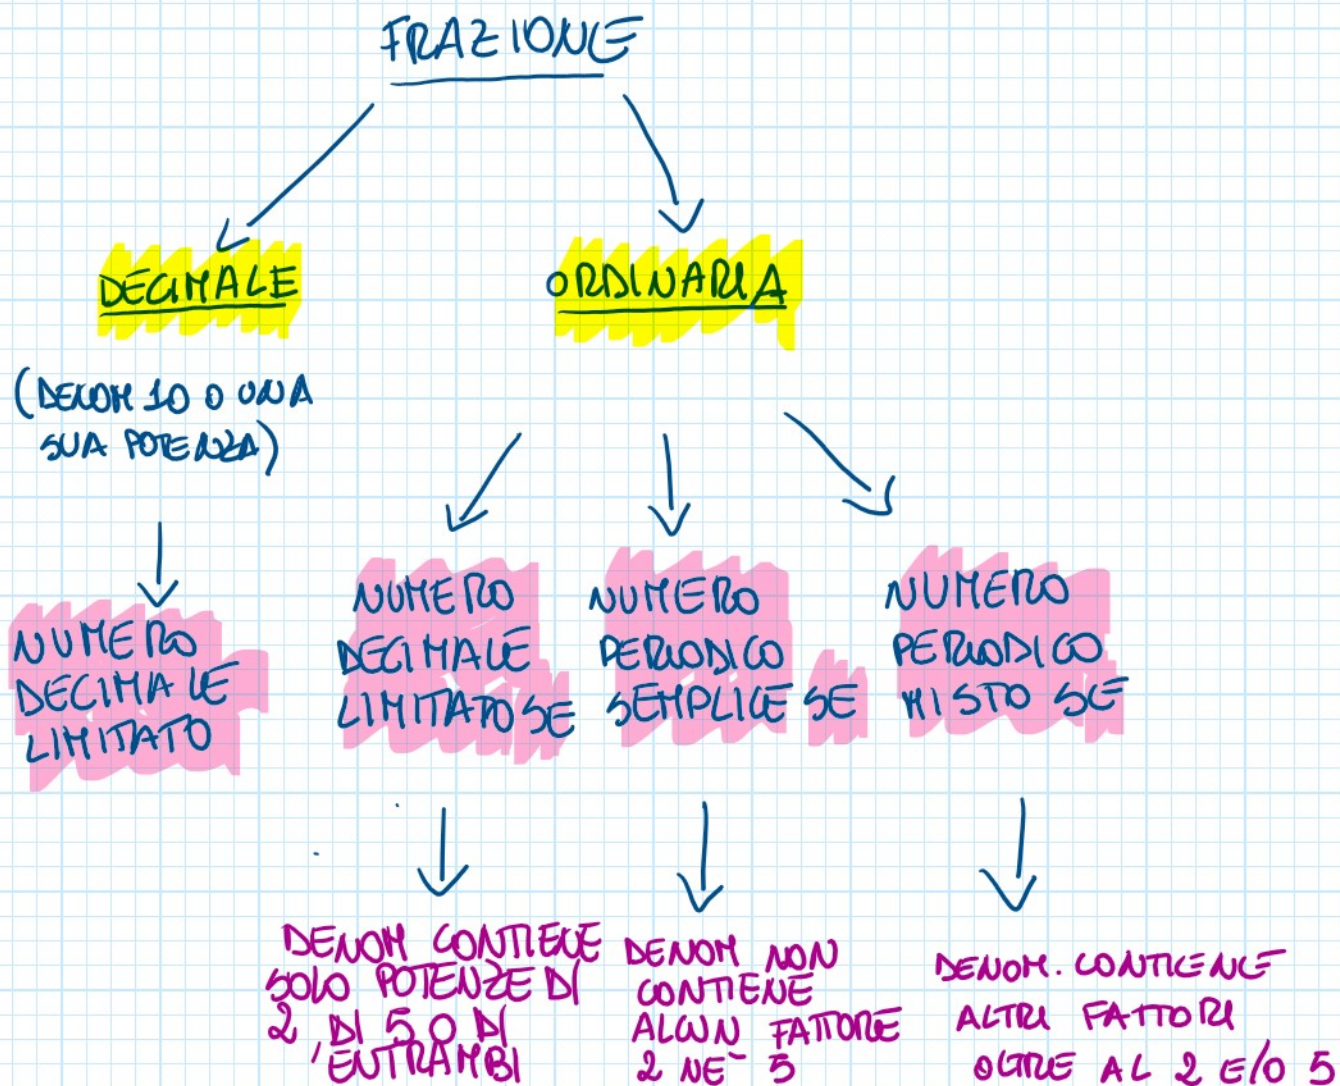 FRAZIONE
DECIMALE
ORDINARIA
(DENOM 10 O UNA
SUA POTENZA)
NUMERO
DECIMALE
LIMITATO
NUMERO
DECIMALE
LIMITATO SE
NUMERO
PERIODICO
SEMPLICE SE
NUMERO
PERIODICO
MISTO SE
DENOM CONTIENE
SOLO POTENZE DI
2, DI 5 O DI
ENTRAMBI
DENOM NON
CONTIENE
ALCUN FATTORE
2 NE 5
DENOM. CONTIENE
ALTRI FATTORI
OLTRE AL 2 E/O 5